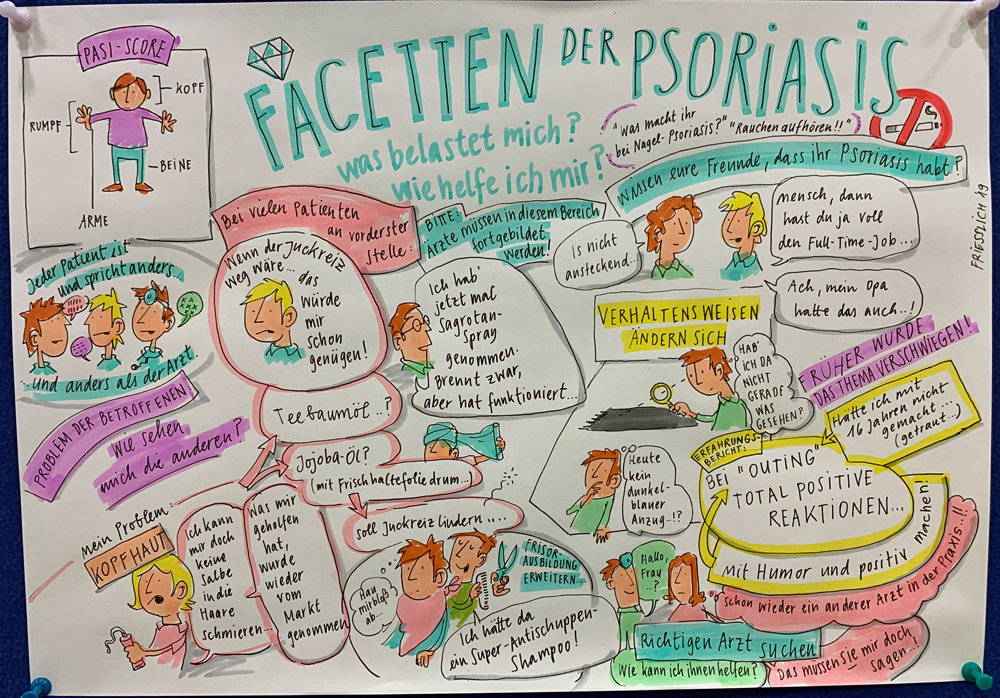 PASI-SCORE
KOPF
RUMPF
BEINE
ARME
FACETTEN DER PSORIASIS
was belastet mich?
wie helfe ich mir?
"Was macht ihr
bei Nagel-Psoriasis?" "Rauchen aufhören!!"
Wissen eure Freunde, dass ihr Psoriasis habt?
Is nicht
ansteckend...
mensch, dann
hast du ja voll
den Full-Time-Job...
Ach, mein Opa
hatte das auch..!
FRIESSLICH 19
Jeder Patient ist
und spricht anders...
...und anders als der Arzt.
Bei vielen Patienten
an vorderster
Stelle:
Wenn der Juckreiz
weg wäre... das
würde
mir
schon
genügen!
BITTE:
Ärzte müssen in diesem Bereich
fortgebildet
werden!
Ich hab'
jetzt mal
Sagrotan-
Spray
genommen.
Brennt zwar,
aber hat funktioniert...
VERHALTENSWEISEN
ÄNDERN SICH
HAB'
ICH DA
NICHT
GERADE
WAS
GESEHEN?
FRÜHER WURDE
DAS THEMA VERSCHWIEGEN!
Hätte ich mit
16 Jahren nicht
gemacht...
(getraut...)
PROBLEM DER BETROFFENEN:
Wie sehen
mich die anderen?
Teebaumöl..?
Jojoba-Öl?
(mit Frischhaltefolie drum...
soll Juckreiz lindern....
Heute
kein
dunkel-
blauer
Anzug..!?
ERFAHRUNGS-
BERICHT:
BEI "OUTING"
TOTAL POSITIVE
REAKTIONEN...
mit Humor und positiv machen!
mein Problem:
KOPFHAUT
Ich kann
mir doch
keine
Salbe
in die
Haare
schmieren
Was mir
geholfen
hat,
wurde
wieder
vom
Markt
genommen
Hau
mir bloß
ab...
FRISÖR-
AUSBILDUNG
ERWEITERN...
Ich hätte da
ein Super-Antischuppen-
Shampoo!
Hallo,
Frau
..?
schon wieder ein anderer Arzt in der Praxis..!!
Richtigen Arzt suchen
Wie kann ich ihnen helfen?
Das müssen Sie mir doch
sagen...!